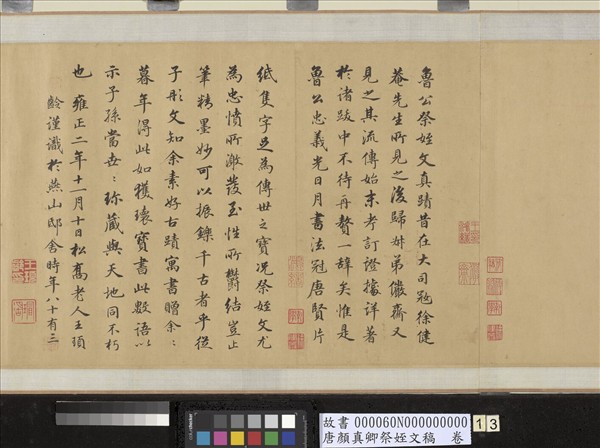 魯公祭姪文真蹟昔在大司寇徐健
菴先生所見之後歸姊弟儼齋又
見之其流傳始末考訂證據詳著
於諸跋中不待再贅一辭矣惟是
魯公忠義光日月書法冠唐賢片
紙隻字足為傳世之寶況祭姪文尤
為忠憤所激發至性所鬱結豈止
筆精墨妙可以振鑠千古者乎從
子彤文知余素好古蹟寓書贈余：
暮年得此如獲瓌寶書此數語以
示子孫當世：珍藏與天地同不朽
也 雍正二年十一月十日松喬老人王頊
齡謹識於燕山邸舍時年八十有三
故書 000060N000000000 13
唐顏真卿祭姪文稿 卷